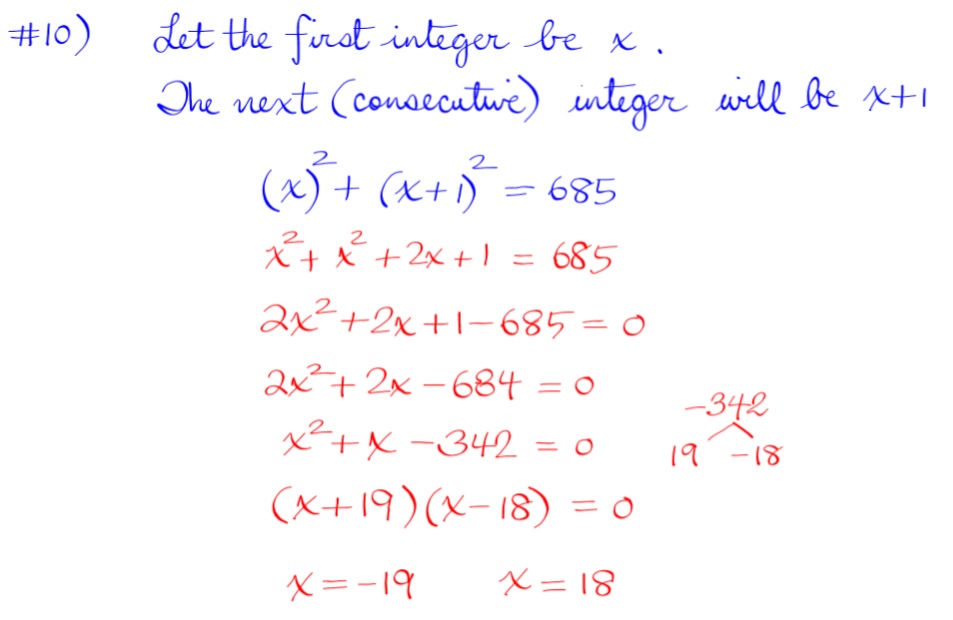 #10) Let the first integer be x.
The next (consecutive) integer will be x+1
(x)² + (x+1)² = 685
x² + x² + 2x + 1 = 685
2x² + 2x + 1 - 685 = 0
2x² + 2x - 684 = 0
x² + x - 342 = 0
-342
19 -18
(x+19)(x-18) = 0
x = -19 x = 18